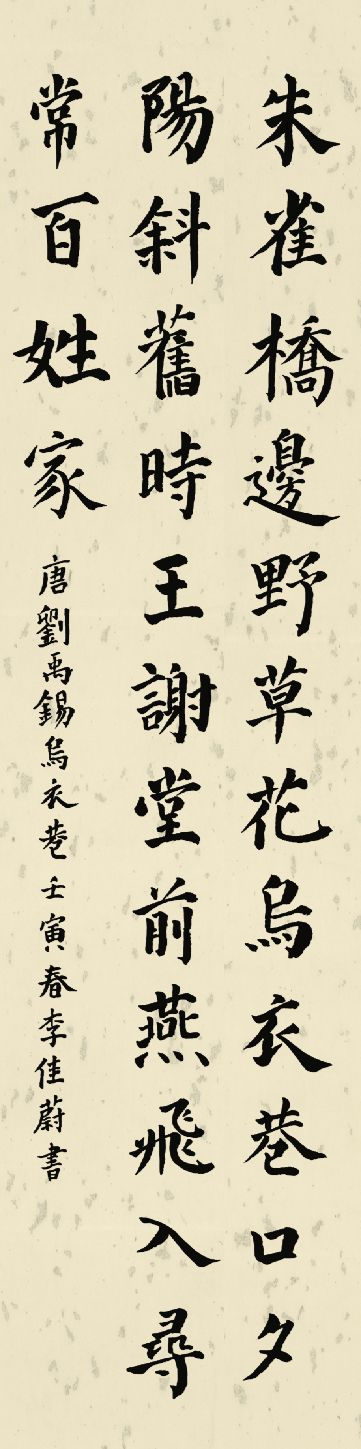 朱雀橋邊野草花烏衣巷口夕
陽斜舊時王謝堂前燕飛入尋
常百姓家
唐劉禹錫烏衣巷壬寅春李佳蔚書